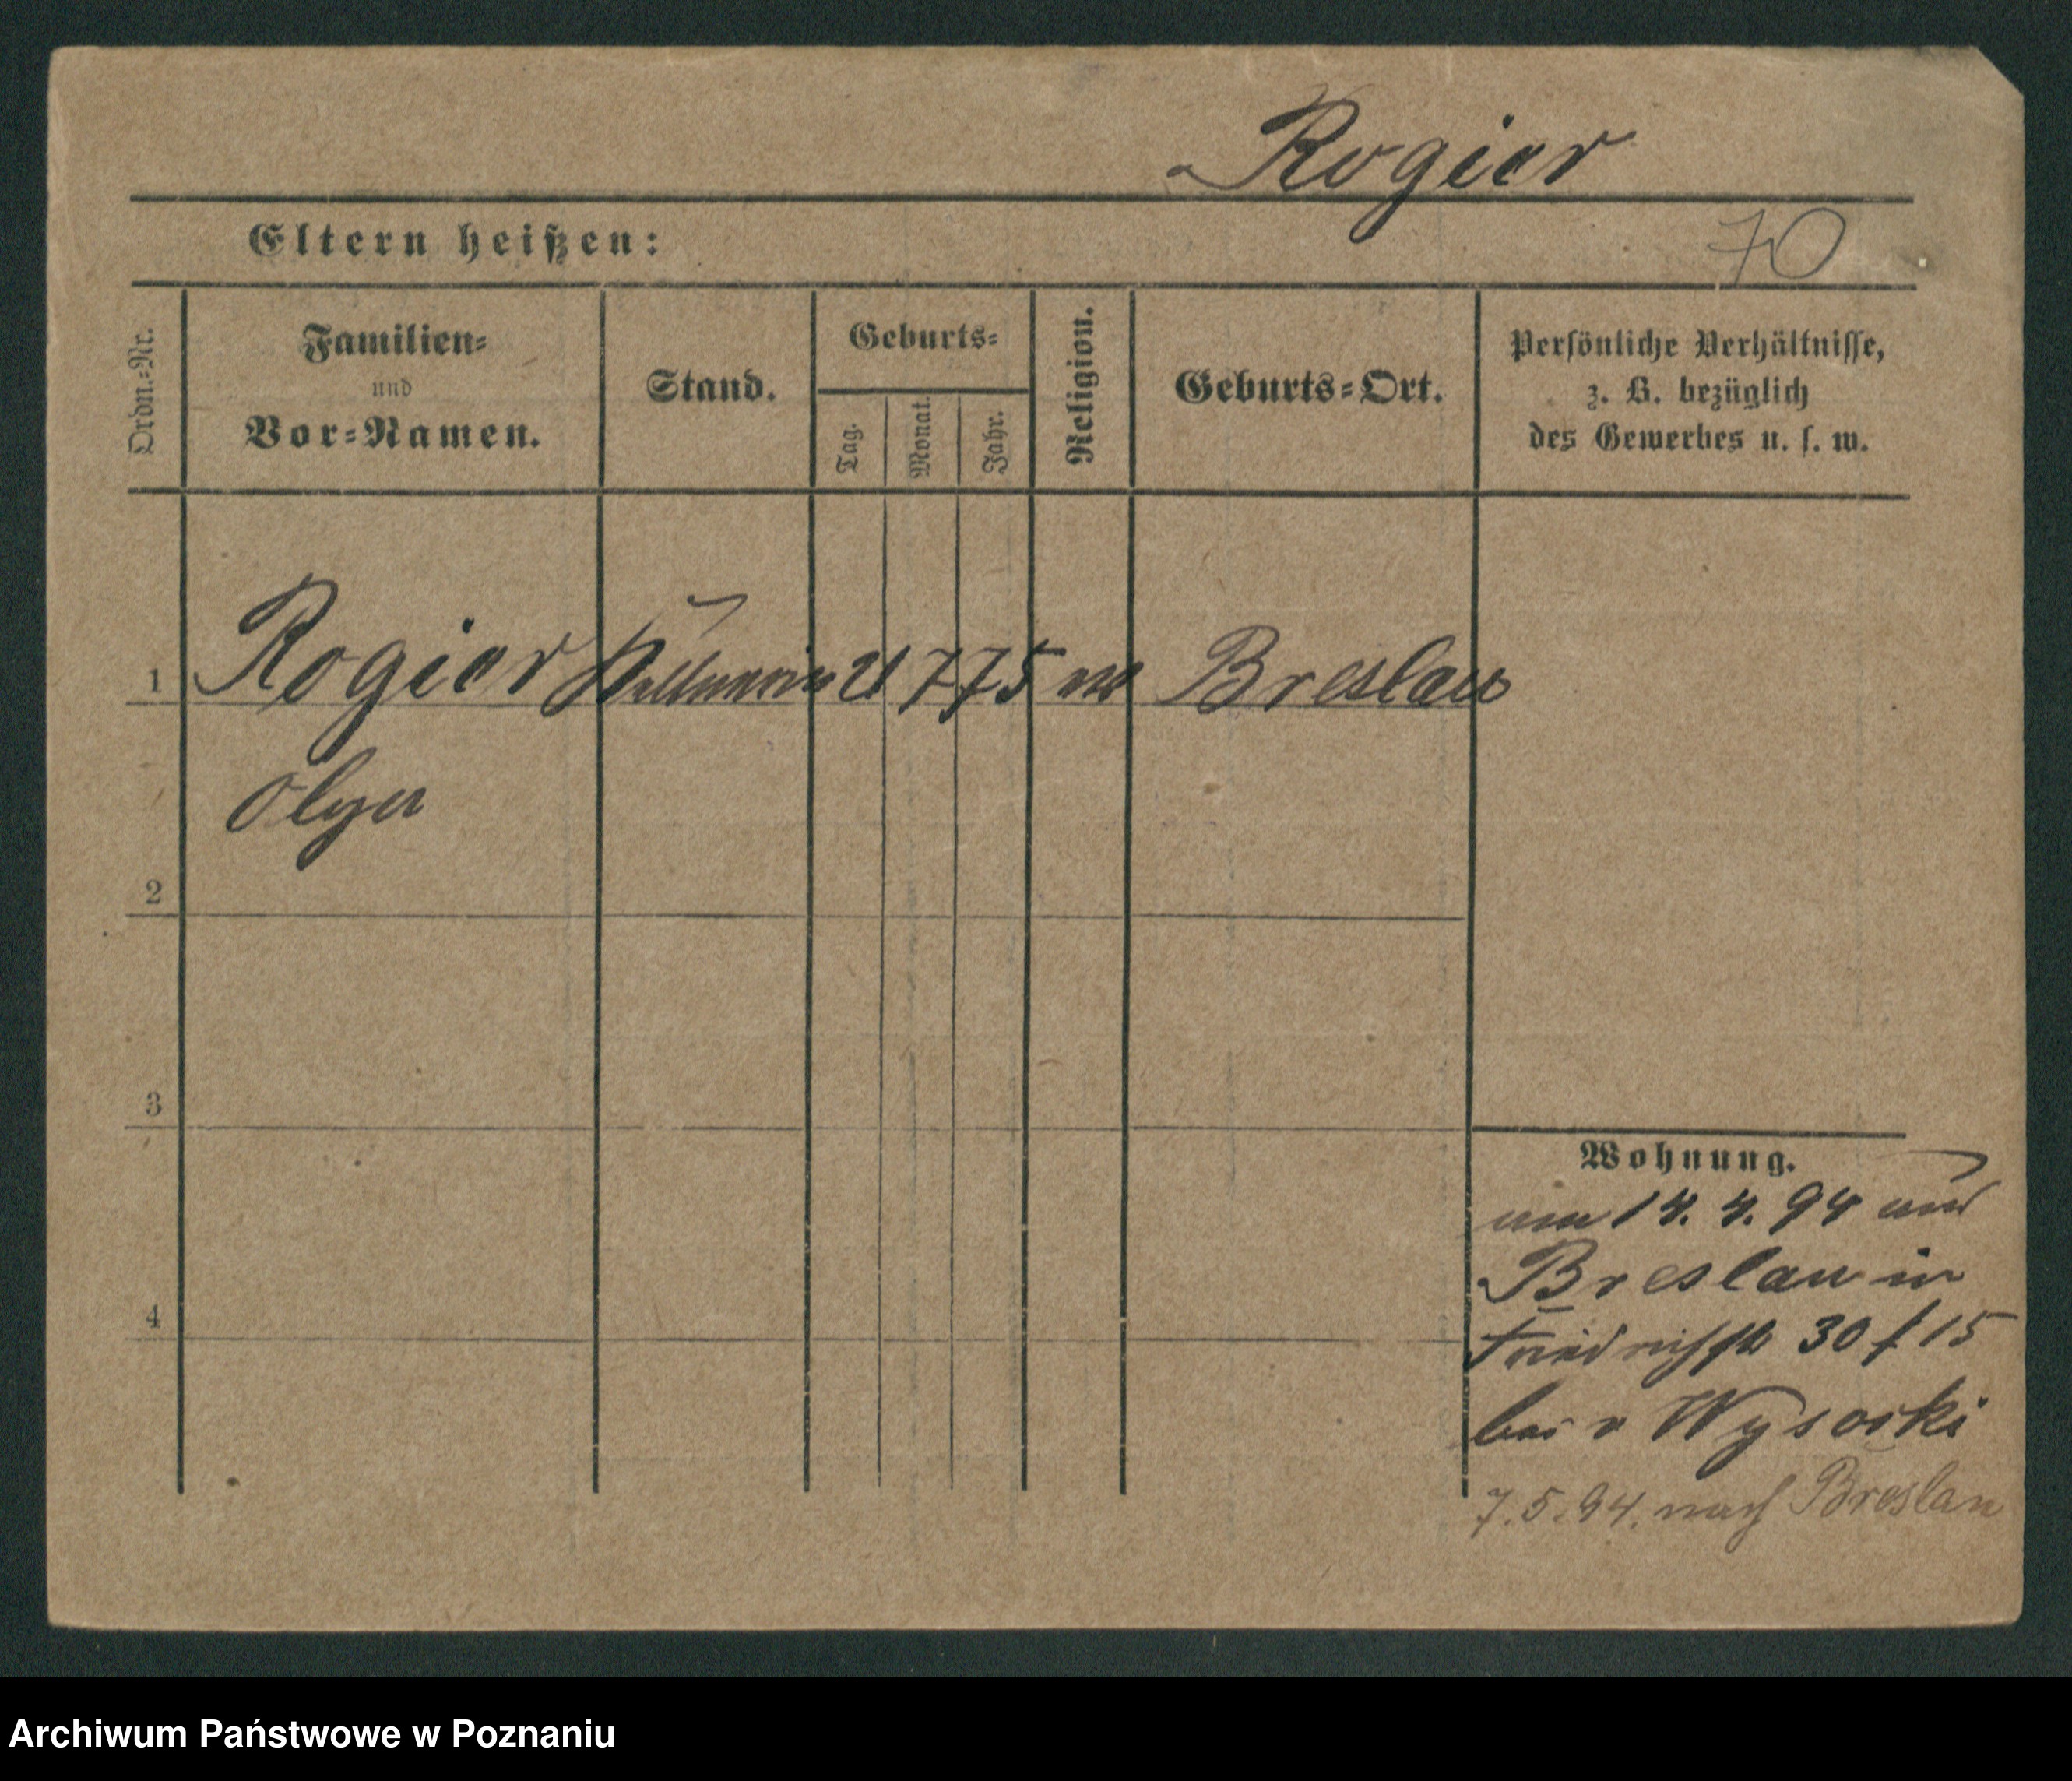 Rogier
Eltern heißen:
70
Ordn.=Nr.
Familien=
und
Vor=Namen.
Stand.
Geburts=
Tag.
Monat.
Jahr.
Religion.
Geburts=Ort.
Persönliche Verhältnisse,
z. B. bezüglich
des Gewerbes u. s. w.
1 Rogier Kellnerin 21 7 75 Breslau
Olga
2
3
4
Wohnung.
am 14. 4. 94 aus
Breslau in
Friedrichstr 30 f 15
bei v Wysocki
7.5.94. nach Breslau
Archiwum Państwowe w Poznaniu